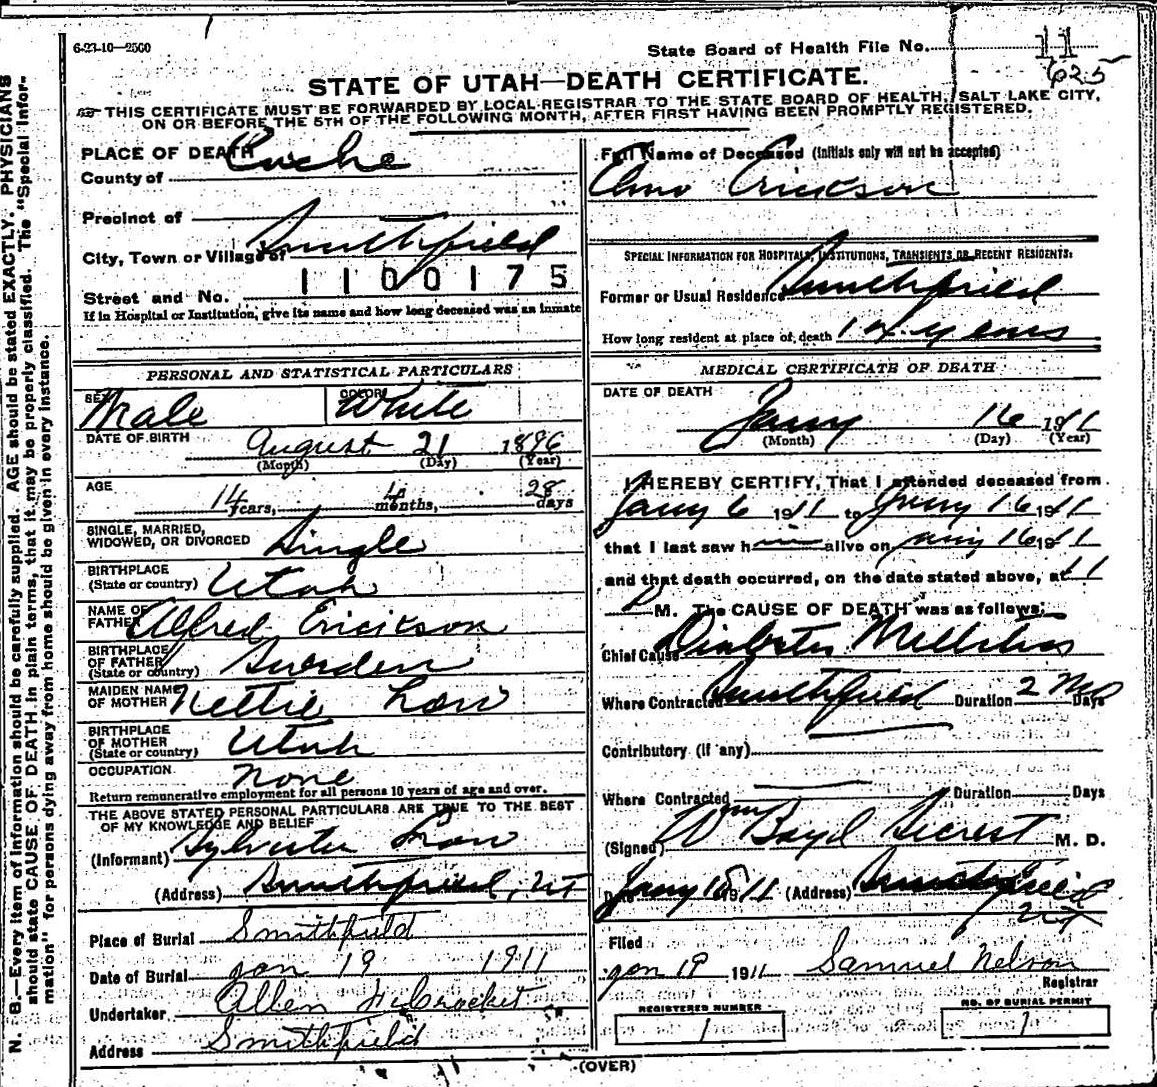 6-23-10—2500
State Board of Health File No. 11
625
STATE OF UTAH—DEATH CERTIFICATE.
THIS CERTIFICATE MUST BE FORWARDED BY LOCAL REGISTRAR TO THE STATE BOARD OF HEALTH, SALT LAKE CITY,
ON OR BEFORE THE 5TH OF THE FOLLOWING MONTH, AFTER FIRST HAVING BEEN PROMPTLY REGISTERED.
N. B.—Every item of information should be carefully supplied. AGE should be stated EXACTLY. PHYSICIANS
should state CAUSE OF DEATH in plain terms, that it may be properly classified. The "Special Infor-
mation" for persons dying away from home should be given in every instance.
PLACE OF DEATH
County of Cache
Precinct of
City, Town or Village of Smithfield
1100175
Street and No.
If in Hospital or Institution, give its name and how long deceased was as inmate
PERSONAL AND STATISTICAL PARTICULARS
SEX Male COLOR White
DATE OF BIRTH August 21 1896
(Month) (Day) (Year)
AGE 14 years, 4 months, 28 days
SINGLE, MARRIED,
WIDOWED, OR DIVORCED Single
BIRTHPLACE
(State or country) Utah
NAME OF
FATHER Alfred Erickson
BIRTHPLACE
OF FATHER
(State or country) Sweden
MAIDEN NAME
OF MOTHER Nettie Low
BIRTHPLACE
OF MOTHER
(State or country) Utah
OCCUPATION None
Return remunerative employment for all persons 10 years of age and over.
THE ABOVE STATED PERSONAL PARTICULARS ARE TRUE TO THE BEST
OF MY KNOWLEDGE AND BELIEF
(Informant) Sylvester Low
(Address) Smithfield, UT
Place of Burial Smithfield
Date of Burial Jan 19 1911
Undertaker Allen
Address Smithfield
Full Name of Deceased (initials only will not be accepted)
Elmo Erickson
SPECIAL INFORMATION FOR HOSPITALS, INSTITUTIONS, TRANSIENTS OR RECENT RESIDENTS:
Former or Usual Residence Smithfield
How long resident at place of death 14 years
MEDICAL CERTIFICATE OF DEATH
DATE OF DEATH
Jany 16 1911
(Month) (Day) (Year)
I HEREBY CERTIFY, That I attended deceased from
Jany 6 1911 to Jany 16 1911
that I last saw h alive on Jany 16 1911
and that death occurred, on the date stated above, at 11
P M. The CAUSE OF DEATH was as follows:
Chief Cause Diabetes Mellitus
Where Contracted Smithfield Duration 2 Mos Days
Contributory (if any)
Where Contracted Duration Days
(Signed) Wm Boyd Secrest M. D.
Date Jany 1911 (Address) Smithfield
Ut
Filed
Jan 19 1911 Samuel Nelson
Registrar
REGISTERED NUMBER
1
NO. OF BURIAL PERMIT
1
(OVER)